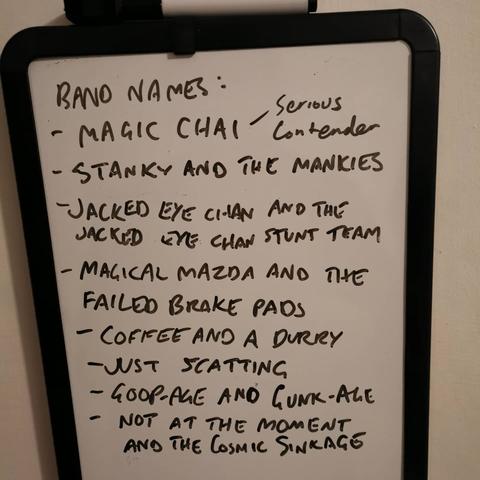 BAND NAMES:
- MAGIC CHAI - Serious
Contender
- STANKY AND THE MANKIES
- JACKED EYE CHAN AND THE
JACKED EYE CHAN STUNT TEAM
- MAGICAL MAZDA AND THE
FAILED BRAKE PADS
- COFFEE AND A DURRY
- JUST SCATTING
- GOOP-AGE AND GUNK-AGE
- NOT AT THE MOMENT
AND THE COSMIC SINKAGE